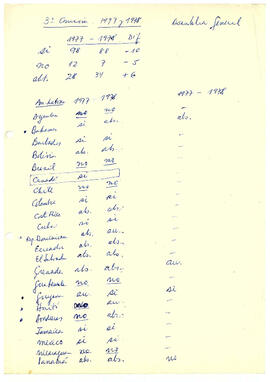 3ª Comisión. 1977 y 1978 Asamblea General
1977 - 1978 Dif
si 98 88 -10
no 12 7 -5
abs. 28 34 +6
1977 - 1978 1977 - 1978
Argentina no no abs.
Bahamas si abs.
Barbados si si -
Bolivia abs. abs. -
Brasil no no -
Canadá si
Chile no no -
Colombia si abs. -
Costa Rica abs. abs. -
Cuba si si -
Rep. Dominicana abs. au. -
Ecuador abs. si -
El Salvador abs. abs. -
Granada abs. abs. au.
Guatemala no no -
Guyana au. si si
Haití no au. -
Honduras abs. abs. -
Jamaica si si -
México si si -
Nicaragua no no -
Panamá abs. abs. no